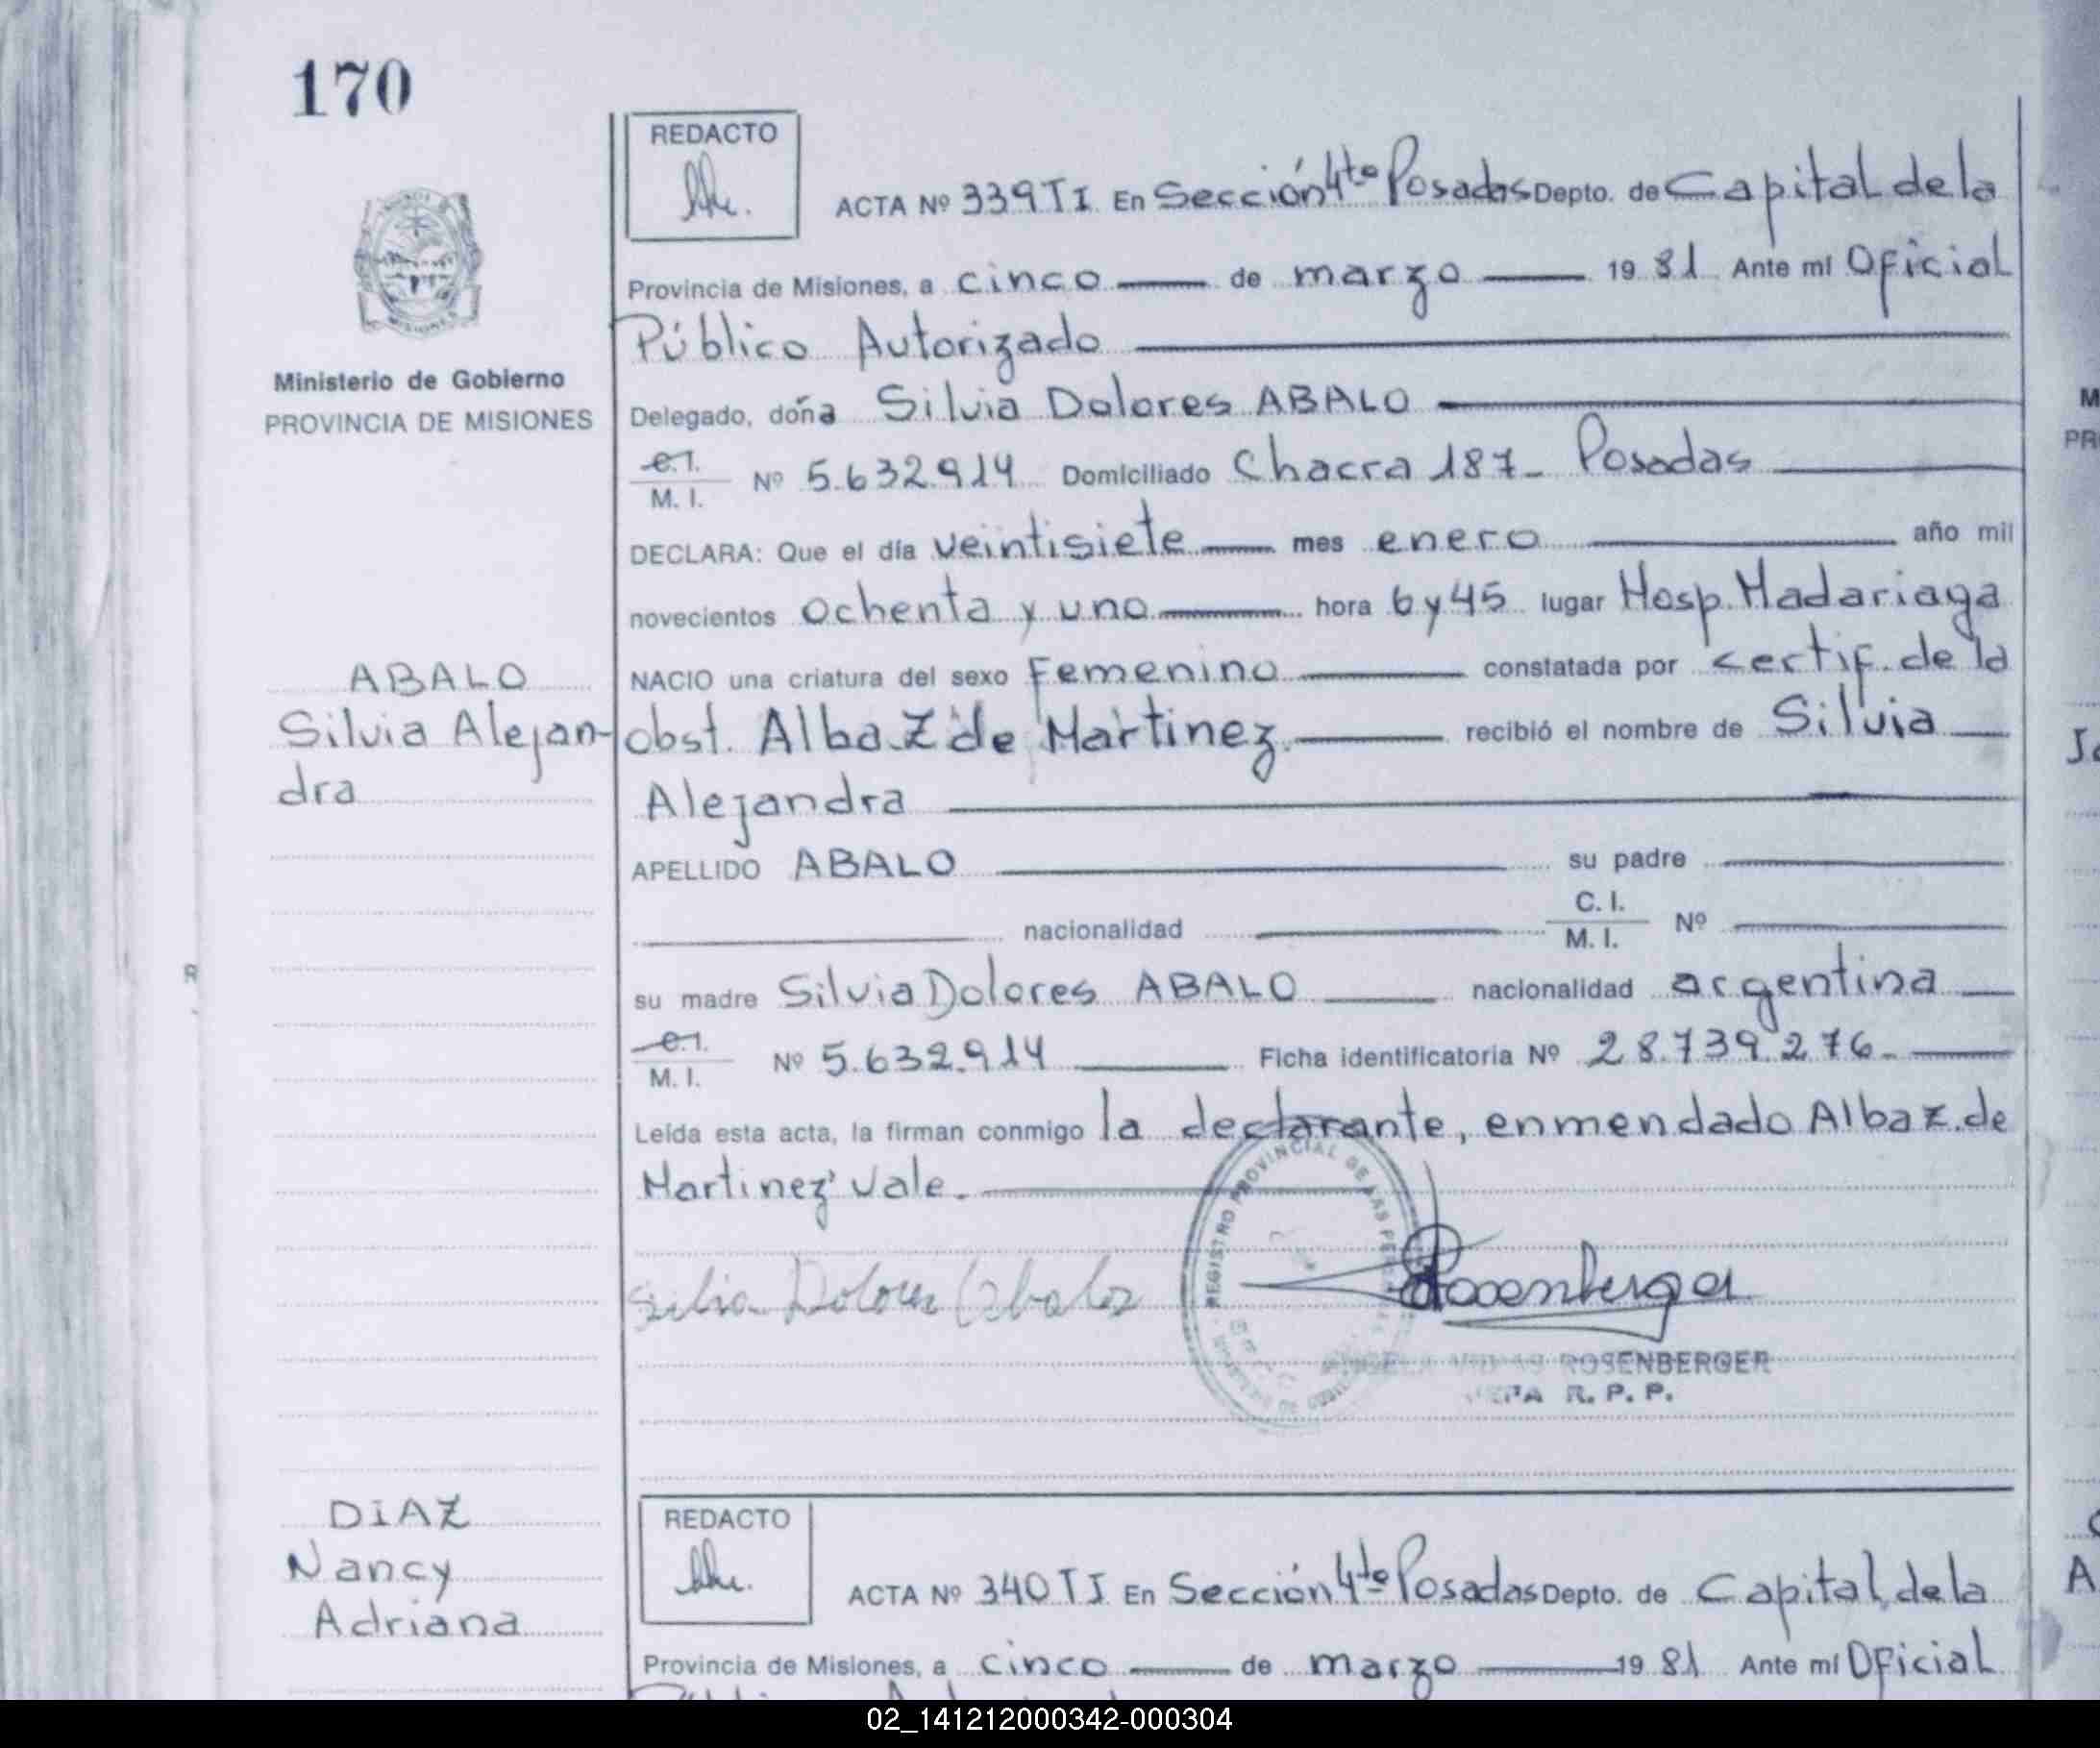 170
REDACTO
ACTA Nº 339 TI En Sección 4ta Posadas Depto. de Capital de la
Provincia de Misiones, a cinco de marzo 1981 Ante mí Oficial
Público Autorizado
Ministerio de Gobierno
PROVINCIA DE MISIONES
Delegado, doña Silvia Dolores ABALO
C.I. M. I. Nº 5.632.914 Domiciliado Chacra 187- Posadas
DECLARA: Que el día veintisiete mes enero año mil
novecientos ochenta y uno hora 6 y 45 lugar Hosp. Madariaga
ABALO
Silvia Alejan-
dra
NACIO una criatura del sexo Femenino constatada por certif. de la
obst. Alba Z de Martinez recibió el nombre de Silvia
Alejandra
APELLIDO ABALO su padre
nacionalidad C. I. M. I. Nº
su madre Silvia Dolores ABALO nacionalidad argentina
C.I. M. I. Nº 5.632.914 Ficha identificatoria Nº 28.739.276.
Leída esta acta, la firman conmigo la declarante, enmendado Alba Z. de
Martinez vale.
REGISTRO PROVINCIAL DE LAS
Silvia Dolores Abalo
Rosenberger
ROSENBERGER
R. P. P.
DIAZ
Nancy
Adriana
REDACTO
ACTA Nº 340 TI En Sección 4ta Posadas Depto. de Capital de la
Provincia de Misiones, a cinco de marzo 1981 Ante mí Oficial
02_141212000342-000304